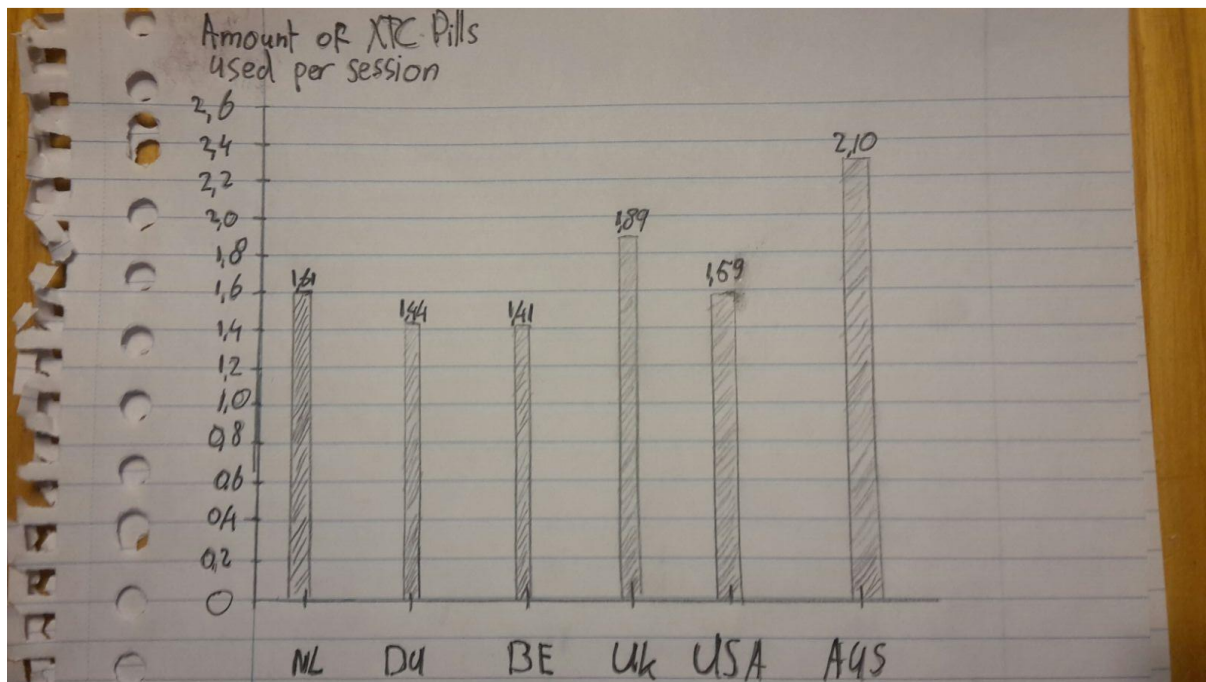 Amount of XTC Pills
used per session
2,6
2,4
2,2
2,0
1,8
1,6
1,4
1,2
1,0
0,8
0,6
0,4
0,2
0
1,61
1,44
1,41
1,89
1,59
2,10
NL DU BE UK USA AUS